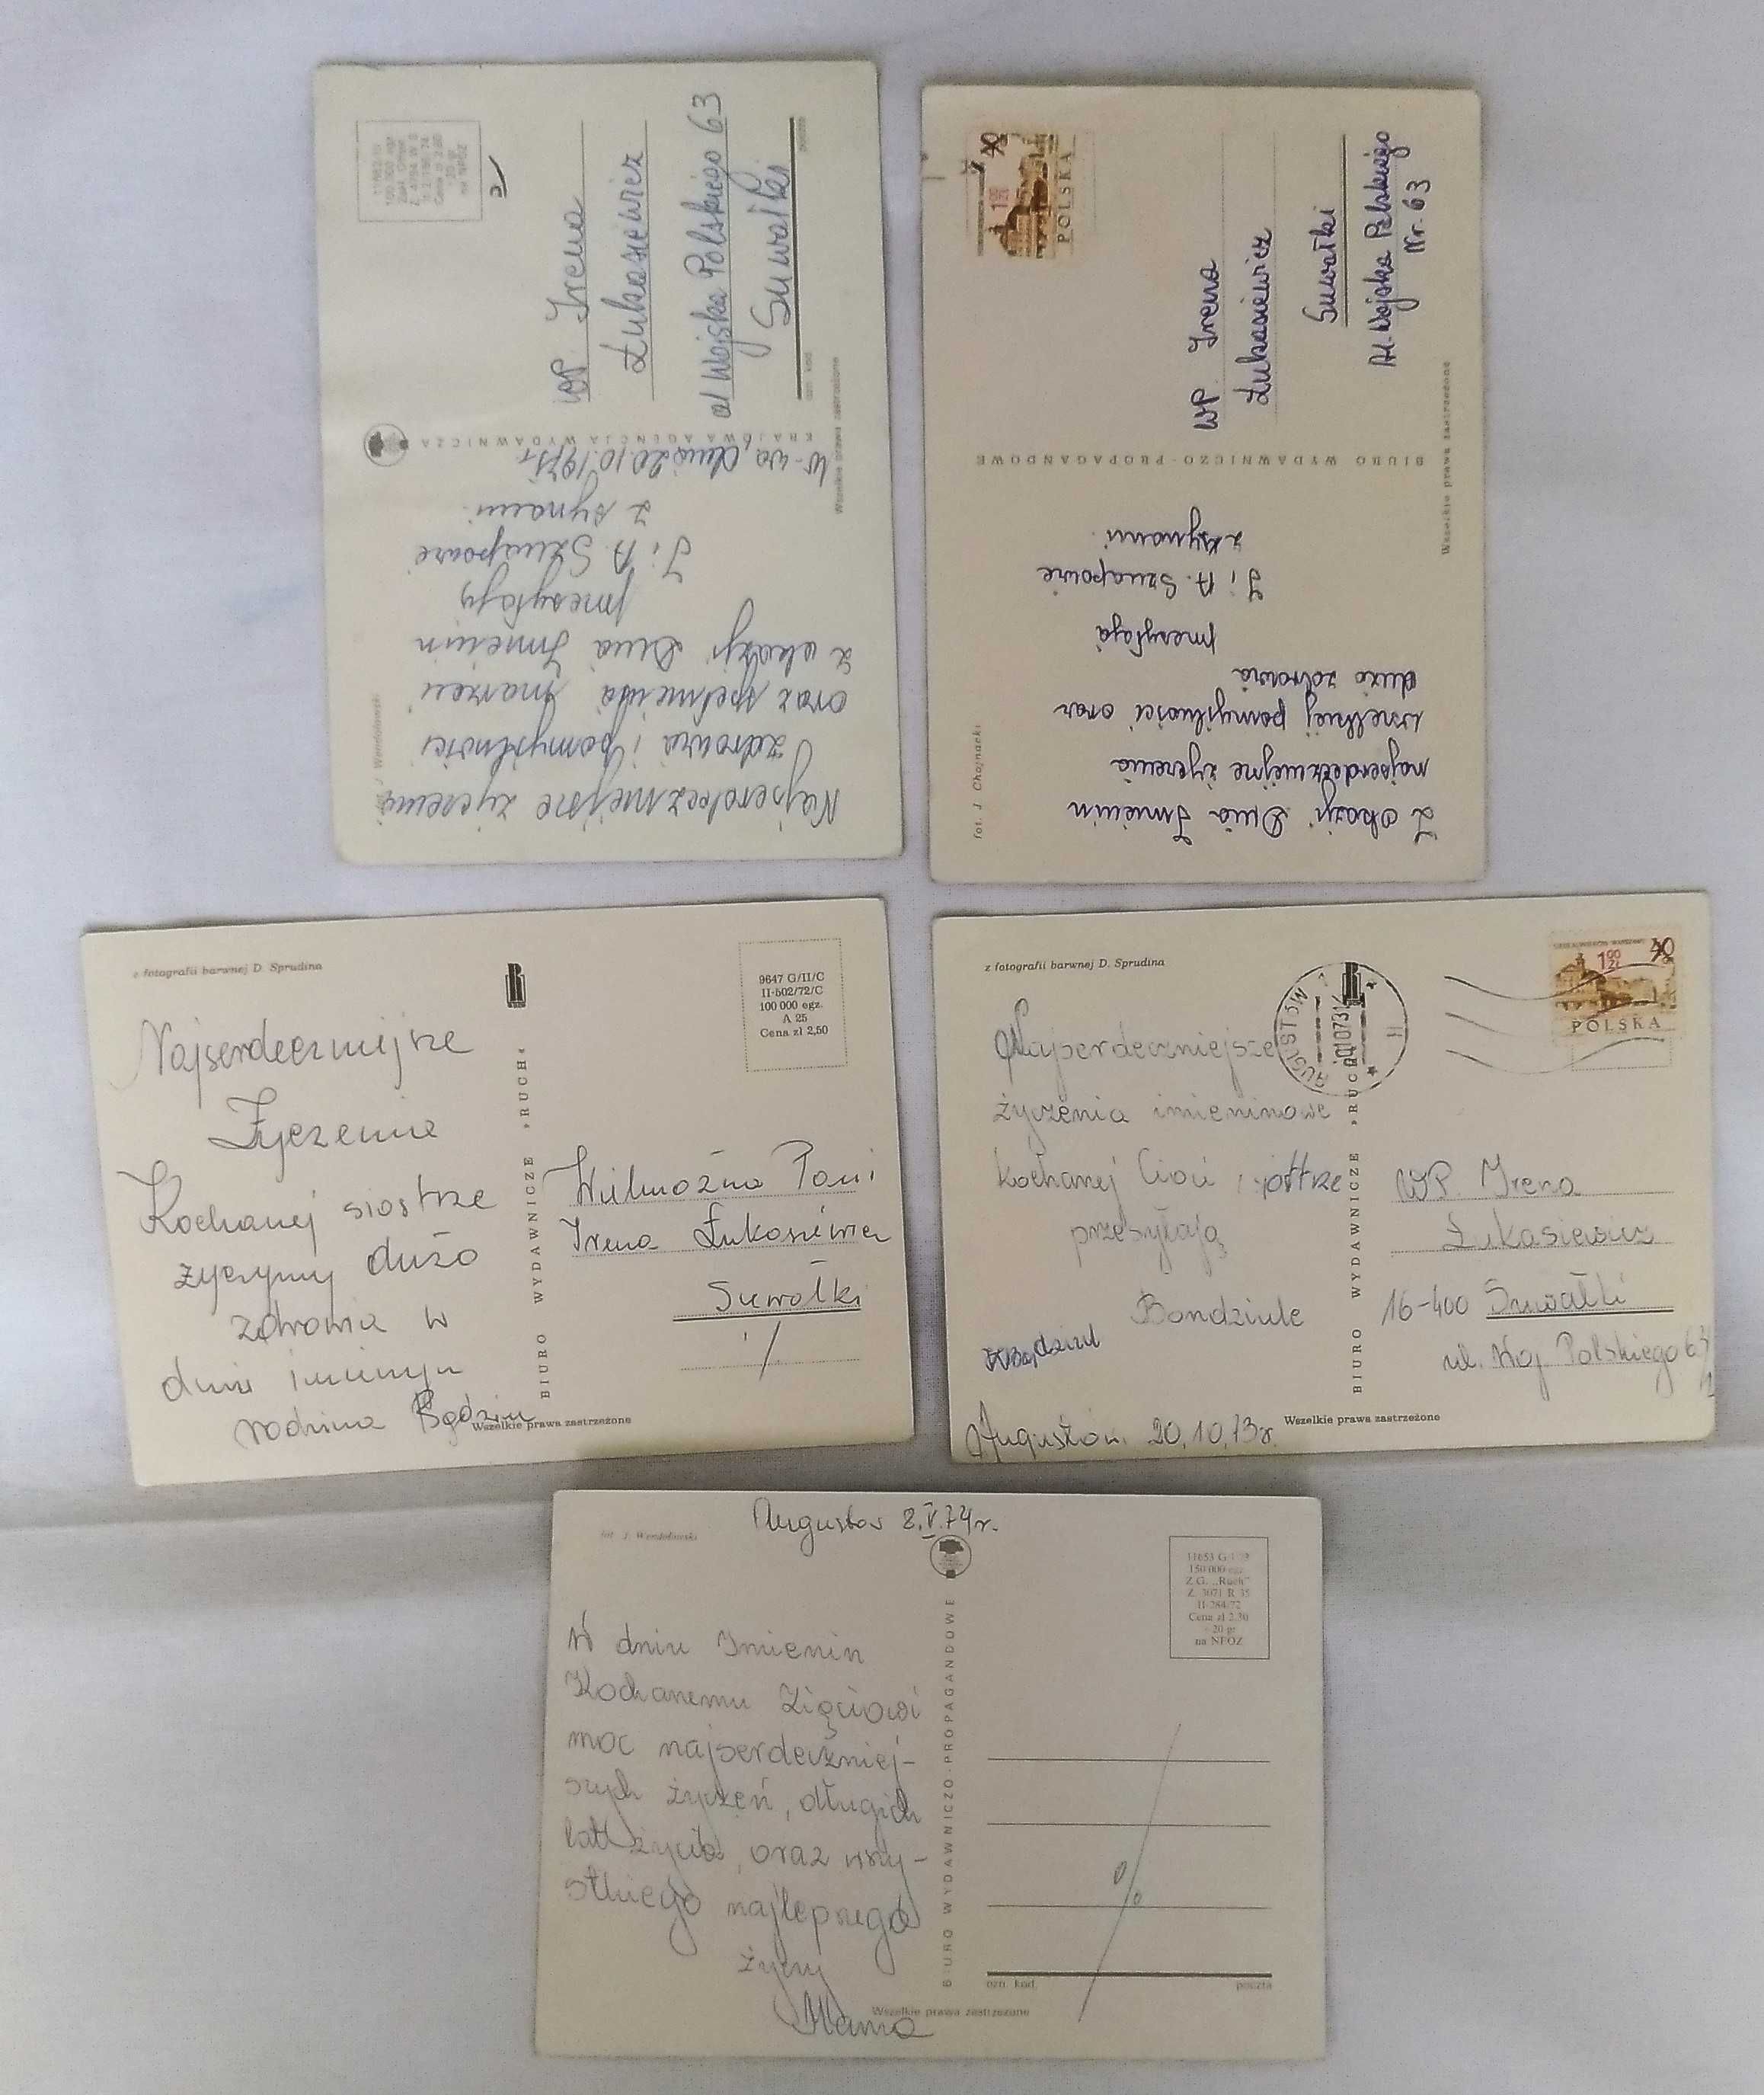 fot. J. Wendołowski
Najserdeczniejsze życzenia
zdrowia i pomyślności
oraz spełnienia marzeń
z okazji Dnia Imienin
przesyłają
J i A. Sznapowie
z synami.
W-wa, dnia 20.10.197
KRAJOWA AGENCJA WYDAWNICZA
Wszelkie prawa zastrzeżone
WP. Irena
Łukasiewicz
al Wojska Polskiego 63
Suwałki
ozn. kod
poczta
fot. J. Chojnacki
Z okazji Dnia Imienin
najserdeczniejsze życzenia
wszelkiej pomyślności oraz
dużo zdrowia
przesyłają
J i A. Sznapowie
z synami.
BIURO WYDAWNICZO-PROPAGANDOWE
Wszelkie prawa zastrzeżone
POLSKA
WP. Irena
Łukasiewicz
Suwałki
Al. Wojska Polskiego
Nr. 63
z fotografii barwnej D. Sprudina
Najserdeczniejsze
Życzenia
Kochanej siostrze
życzymy dużo
zdrowia w
dniu
rodzina
BIURO WYDAWNICZE »RUCH«
Wszelkie prawa zastrzeżone
9647 G/II/C
II-502/72/C
100 000 egz.
A 25
Cena zł 2,50
Wielmożna Pani
Irena Łukasiewicz
Suwałki
z fotografii barwnej D. Sprudina
Najserdeczniejsze
życzenia imieninowe
kochanej Cioci i siostrze
przesyłają
Bondziule
Augustów. 20.10.73r.
BIURO WYDAWNICZE »RUCH«
Wszelkie prawa zastrzeżone
AUGUSTÓW 1
1 90 ZŁ
POLSKA
WP. Irena
Łukasiewicz
16-400 Suwałki
ul. Woj Polskiego 63
Augustów 8.V.74r.
fot. J. Wendołowski
W dniu Imienin
Kochanemu Zięciowi
moc najserdeczniej-
szych życzeń, długich
lat życia, oraz wszy-
stkiego najlepszego
życzy
Mama
BIURO WYDAWNICZO-PROPAGANDOWE
Wszelkie prawa zastrzeżone
150 000 egz.
Z.G. „Ruch"
Z. 3071 R 35
II-284/72
Cena zł 2,30
+ 20 gr
na NFOZ
ozn. kod.
poczta